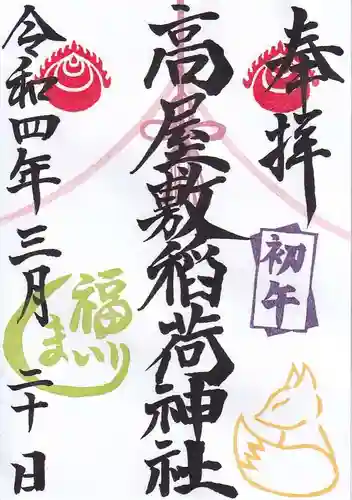 奉拝
初午
高屋敷稲荷神社
福まいり
令和四年三月二十日